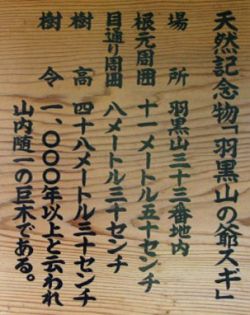 天然記念物「羽黒山の爺スギ」
場所 羽黒山三十三番地内
根元周囲 十一メートル五十センチ
目通り周囲 八メートル三十センチ
樹高 四十八メートル三十センチ
樹令 一、〇〇〇年以上と云われ
山内随一の巨木である。